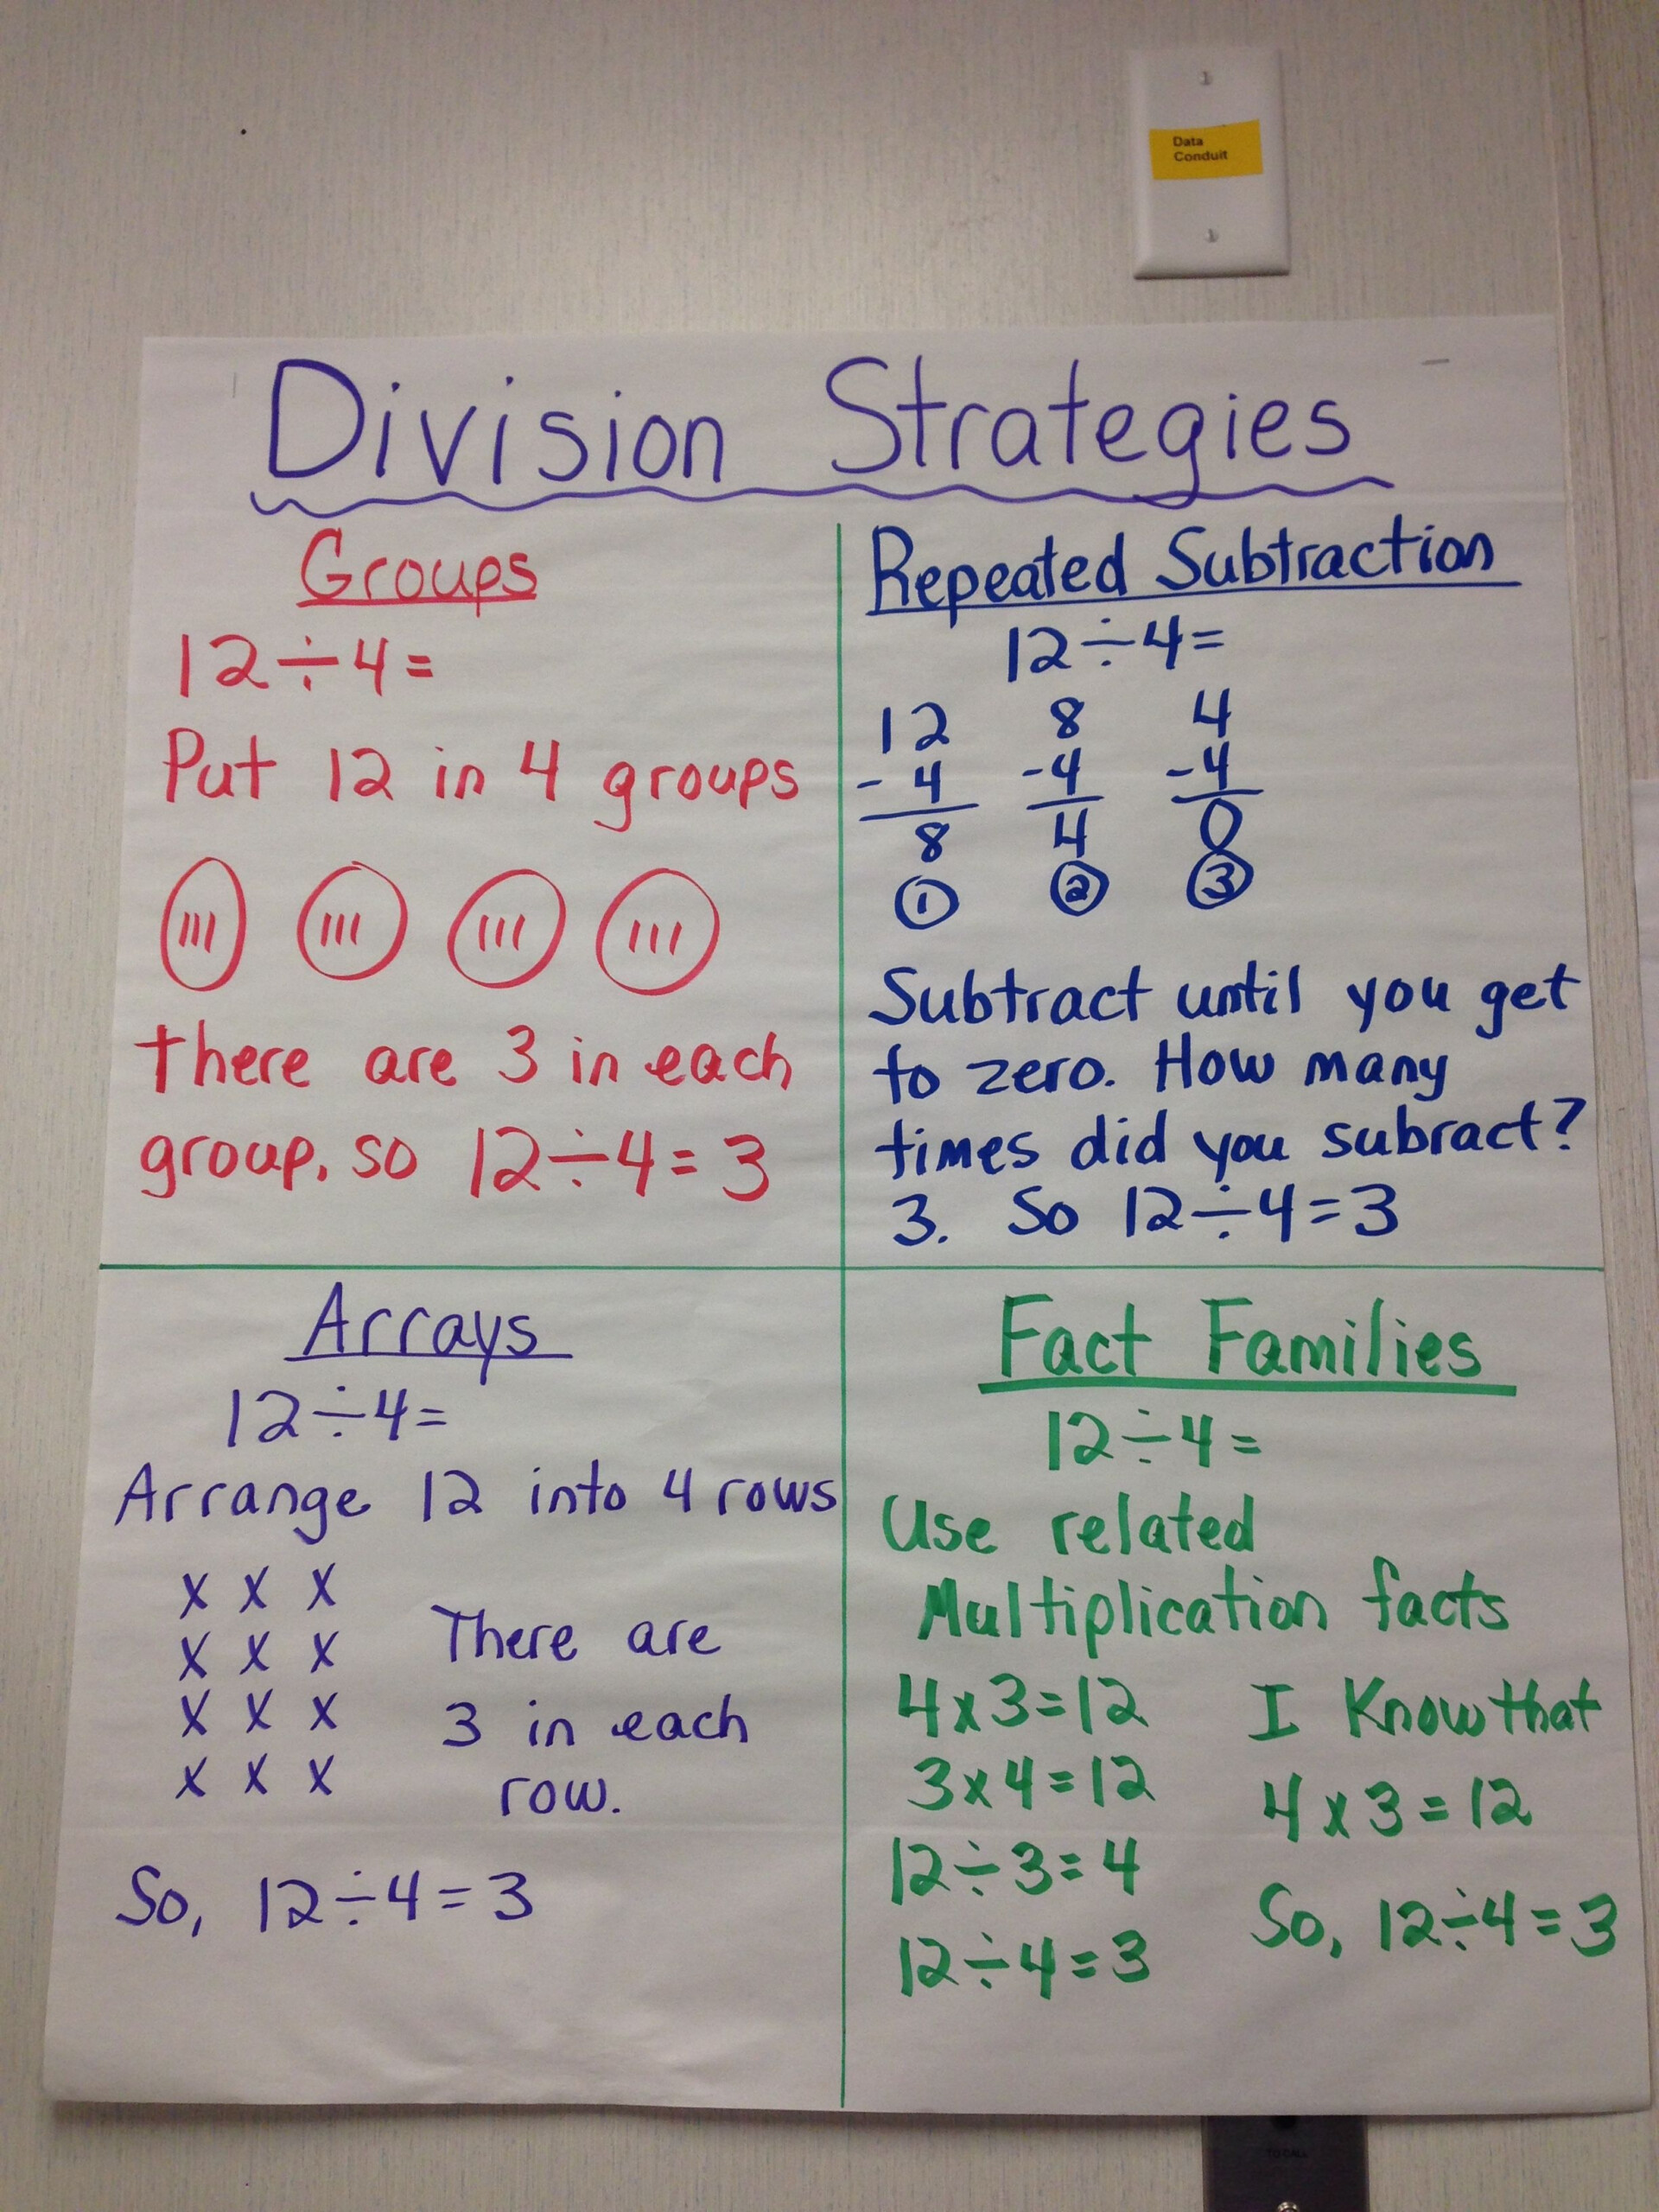 Data
Conduit
Division Strategies
Groups
12÷4=
Put 12 in 4 groups
there are 3 in each
group, so 12÷4=3
Repeated Subtraction
12÷4=
12 8 4
-4 -4 -4
8 4 0
1 2 3
Subtract until you get
to zero. How many
times did you subract?
3. So 12÷4=3
Arrays
12÷4=
Arrange 12 into 4 rows
x x x
x x x
x x x
x x x
There are
3 in each
row.
So, 12÷4=3
Fact Families
12÷4=
Use related
Multiplication facts
4x3=12
3x4=12
12÷3=4
12÷4=3
I Know that
4x3=12
So, 12÷4=3
TO CALL